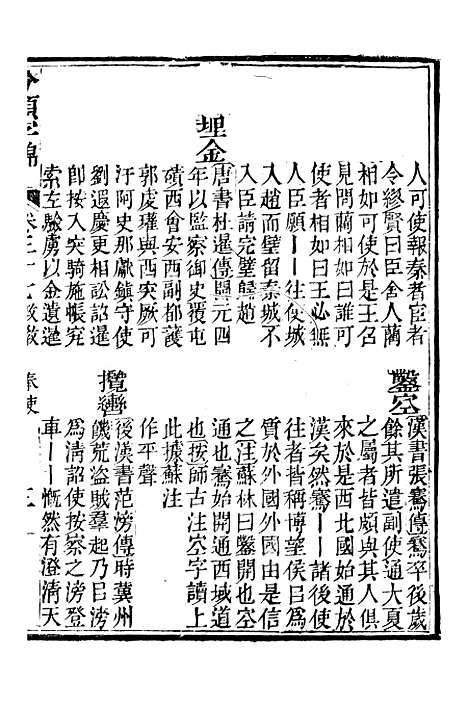 人可使報秦者宦者
令繆賢曰臣舍人藺
相如可使於是王召
見問藺相如曰誰可
使者相如曰王必無
人臣願丨丨往使城
入趙而璧留秦城不
入臣請完璧歸趙
埋金
唐書杜暹傳開元四
年以監察御史覆屯
磧西會安西副都護
郭虔瓘與西突厥可
汗阿史那獻鎮守使
劉遐慶更相訟詔暹
即按入突騎施帳究
索左驗虜以金遺暹
鑿空
漢書張騫傳騫卒後歲
餘其所遣副使通大夏
之屬者皆頗與其人俱
來於是西北國始通於
漢矣然騫丨丨諸後使
往者皆稱博望侯㠯為
質於外國外國由是信
之注蘇林曰鑿開也空
通也騫始開通西域道
也按師古注空字讀上
此據蘇注
作平聲
攬轡
後漢書范滂傳時冀州
饑荒盜賊羣起乃㠯滂
為清詔使按察之滂登
車丨丨慨然有澄清天
分類字錦 卷三十七 政教 奉使